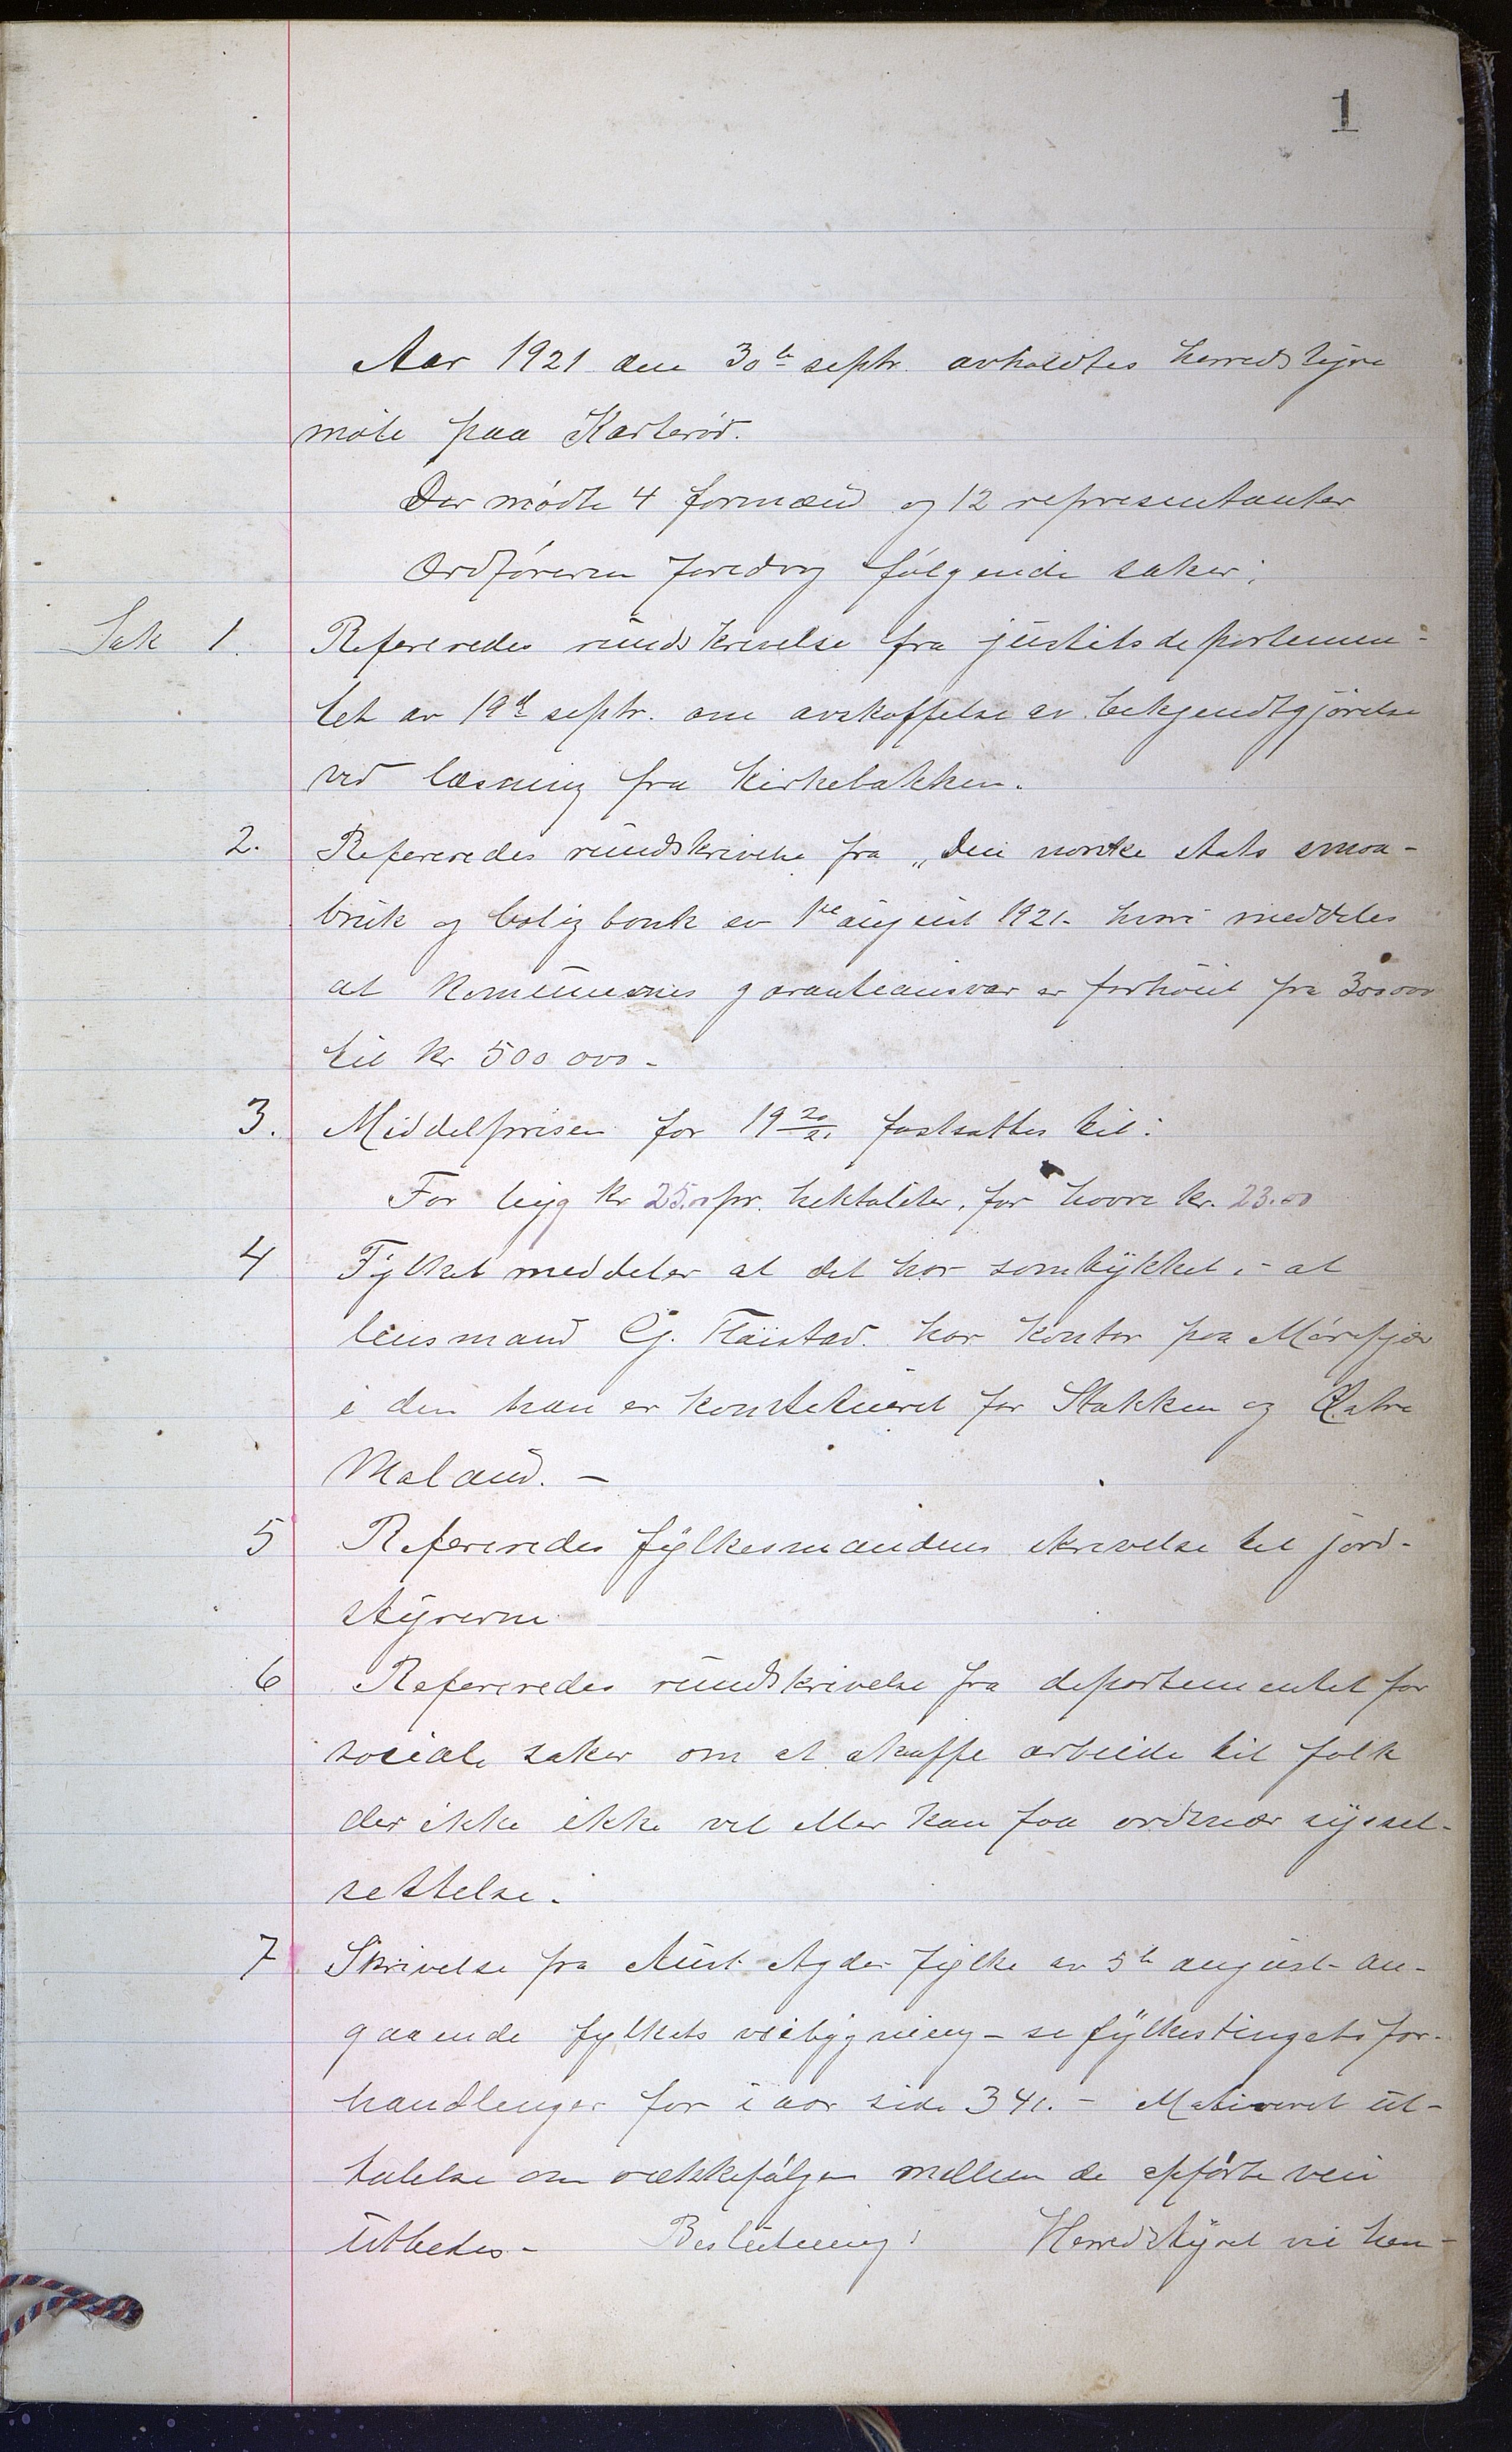 1
Aar 1921 den 30te septr. avholdtes herredstyre
møte paa Karterød.
Der mødte 4 formænd og 12 representanter
Ordføreren foredrog følgende saker:
Sak 1. Refereredes rundskrivelse fra justitsdepartemen-
tet av 19de septr. om avskaffelse av bekjendtgjørelse
ved læsning fra kirkebakken.
2. Refereredes rundskrivelse fra „Den norske stats smaa-
bruk og bolig bank av 1ste august 1921 - hvori meddeles
at kommunernes garantiansvar er forhøiet fra 300 000
til kr 500 000 -
3. Middelprisen for 19 20/21 fastsattes til:
For byg kr 25.00 pr. hektoliter, for havre kr. 23.00
4 Fylket meddeler at det har samtykket i - at
lensmand Gj. Fløistad. har kontor paa Mørefjær
i den han er konstitueret for Stokken og Østre
Moland. -
5 Refereredes fylkesmandens skrivelse til jord-
styrerne
6 Refereredes rundskrivelse fra departementet for
sociale saker om at skaffe arbeide til folk
der ikke ikke vil eller kan faa ordinær syssel-
settelse.
7 Skrivelse fra Aust-Agder fylke av 5te august - an-
gaaende fylkets veibygning - se fylkestingets for-
handlinger for i aar side 341. - Motiveret ut-
talelse om rækkefølgen mellem de opførte vei
utbedes - Beslutning: Herredstyret vil hen-